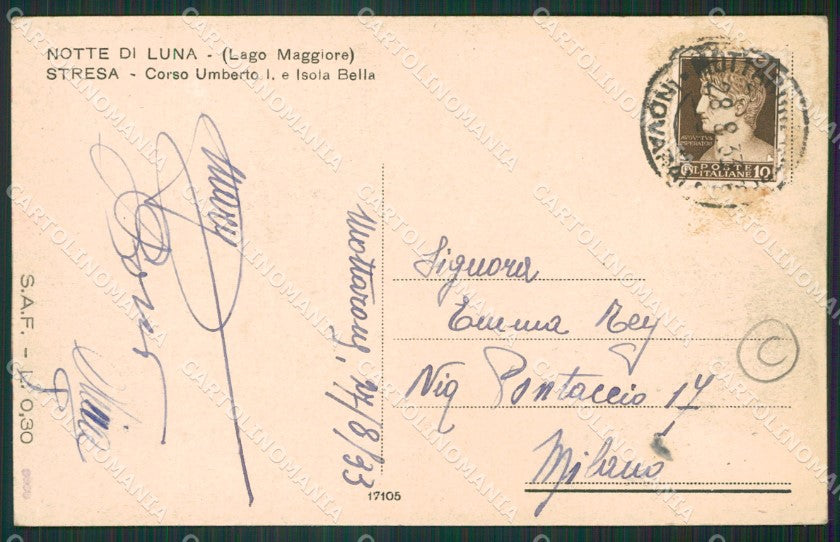 NOTTE DI LUNA - (Lago Maggiore)
STRESA - Corso Umberto I. e Isola Bella
POSTE
ITALIANE 10
NOVARA
28.8.33
Mottarone, 27/8/33
Signora
Emma Rey
Via Pontaccio 17
Milano
C
17105
S.A.F. - L. 0,30
CARTOLINOMANIA